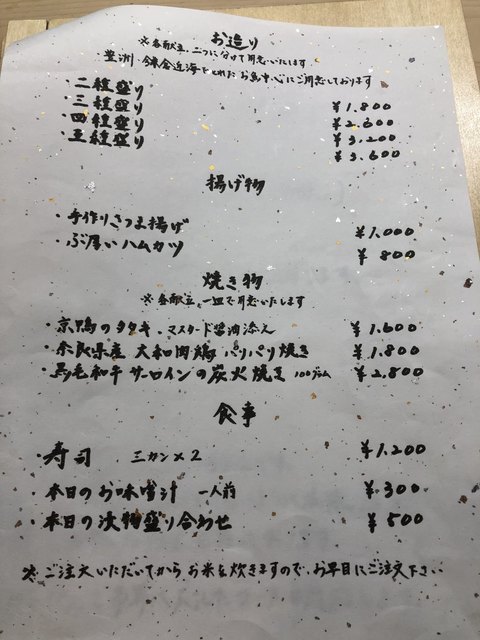 お造り
※各献立、二つに分けて用意いたします
豊洲・鎌倉近海でとれたお魚中心にご用意しております
・二種盛り ¥1.800
・三種盛り ¥2.600
・四種盛り ¥3.200
・五種盛り ¥3.600
揚げ物
・手作りさつま揚げ ¥1.000
・ぶ厚いハムカツ ¥800
焼き物
※各献立、一皿で用意いたします
・京鴨のタタキ、マスタード醤油添え ¥1.600
・奈良県産 大和肉鶏パリパリ焼き ¥1.800
・黒毛和牛サーロインの炭火焼き 100グラム ¥2.800
食事
・寿司 三カン×2 ¥1.200
・本日のお味噌汁 一人前 ¥.300
・本日の漬物盛り合わせ ¥500
※ご注文いただいてからお米を炊きますので、お早目にご注文下さい。